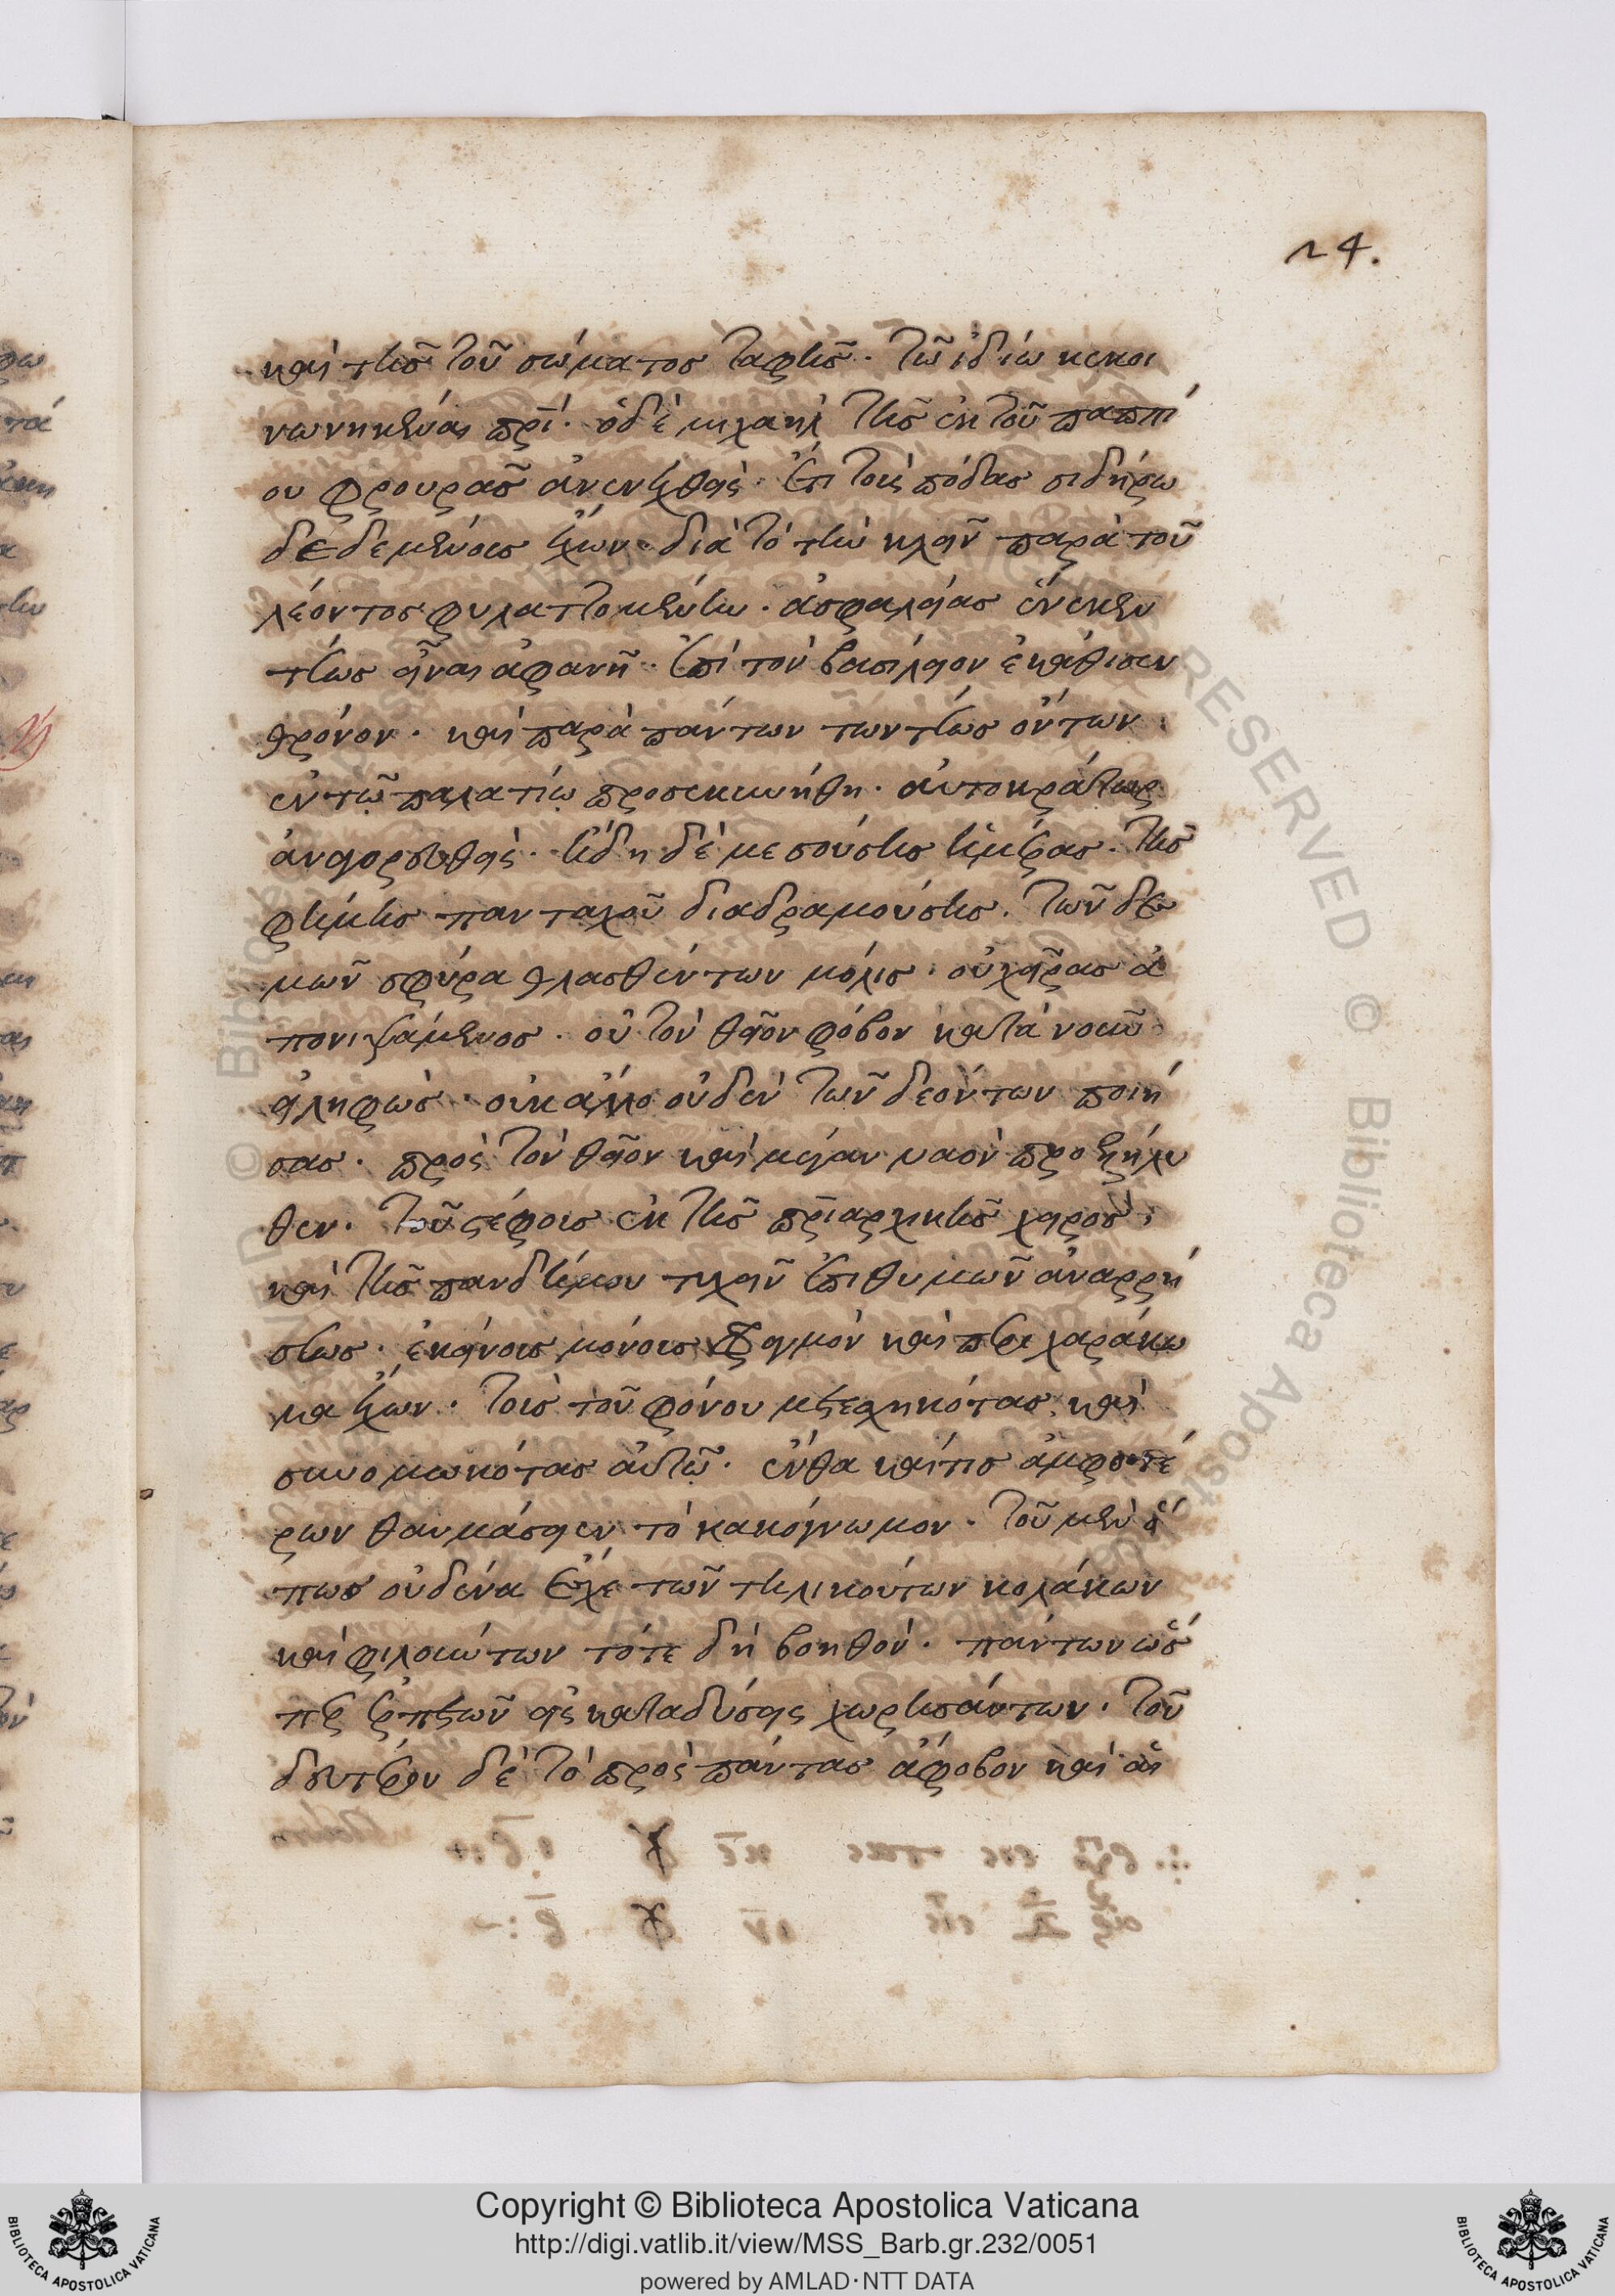 24.
καὶ τῆς τοῦ σώματος ταφῆς. τῶ ἰδίω κεκοι
νωνηκέναι πρι. ὁ δὲ μιχαὴλ τῆς ἐκ τοῦ παππί
ου φρουρᾶς ἀνενεχθεὶς. ἔτι τοὺς πόδας σιδήρω
δεδεμένους ἔχων. διὰ τὸ τὴν κλεῖν παρὰ τοῦ
λέοντος φυλαττομένην. ἀσφαλείας ἕνεκεν
τέως εἶναι ἀφανῆ. ἐπὶ τὸν βασίλειον ἐκάθισεν
θρόνον. καὶ παρὰ πάντων των τέως ὄντων
ἐν τῶ παλατίω προσεκυνήθη. αὐτοκράτωρ
ἀναγορευθεὶς. ἤδη δὲ μεσούσης ἡμέρας. τῆς
φήμης πανταχοῦ διαδραμούσης. τῶν δε
μῶν σφύρα θλασθέντων μόλις. οὐ χεῖρας ἀ
πονιψάμενος. οὐ τὸν θεῖον φόβον κατὰ νοῦν
εἰληφὼς. οὐκ ἄλλο οὐδὲν τῶν δεόντων ποιή
σας. πρὸς τὸν θεῖον καὶ μέγαν ναὸν προεξήλυ
θεν. τοῦ στέφους ἐκ τῆς πριαρχικῆς χειρὸς.
καὶ τῆς πανδήμου τυχεῖν ἐπιθυμῶν ἀναρρή
σεως. ἐκείνους μόνους φραγμὸν καὶ περιχαράκω
μα ἔχων. τοὺς τοῦ φόνου μετεσχηκότας καὶ
συνομωκότας αὐτῶ. ἔνθα καί τις ἀμφοτέ
ρων θαυμάσειεν τὸ κακόγνωμον. τοῦ μὲν ὅ
πως οὐδένα εἶχε τῶν τηλικούτων κολάκων
καὶ φιλούντων τότε δὴ βοηθὸν. πάντων ὥσ
περ ἑρπετῶν εἰς καταδύσεις χωρησάντων. τοῦ
δευτέρου δὲ τὸ πρὸς πάντας ἄφοβον καὶ ἀν
Copyright © Biblioteca Apostolica Vaticana
http://digi.vatlib.it/view/MSS_Barb.gr.232/0051
powered by AMLAD·NTT DATA